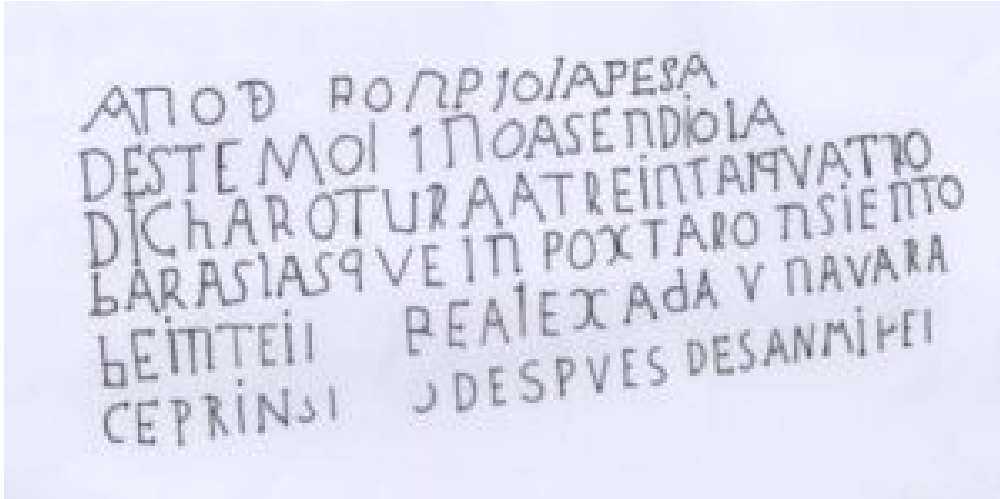 AÑO D ROMPIO LA PESA
DESTE MOLINO ASENDIO LA
DICHA ROTURA A TREINTA I QVATRO
bARAS LAS QVE INPOXTARON SIENTO
bEINTE I REALEX ADA V NAVARA
CEPRINSI DESPVES DE SAN MI